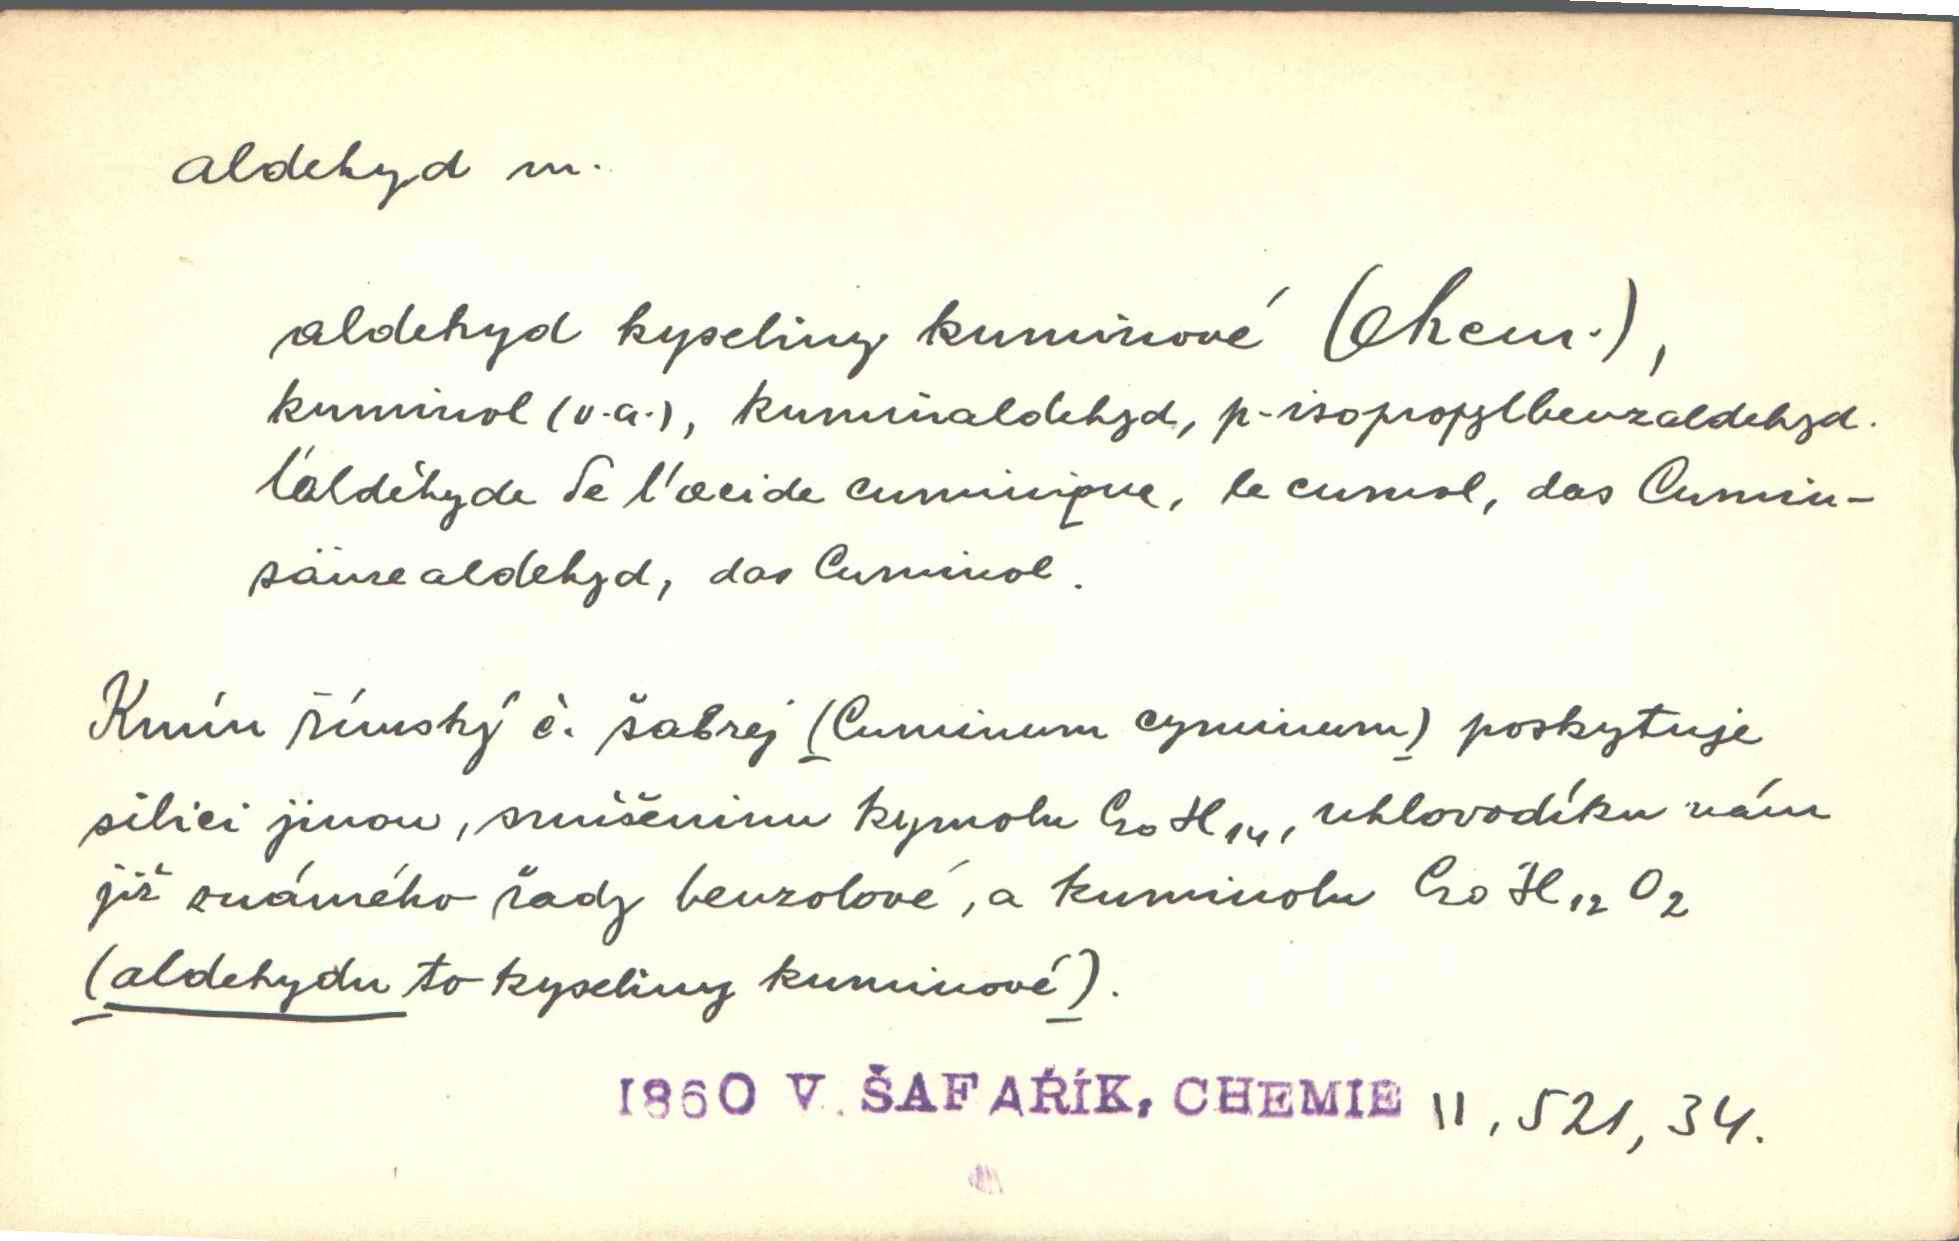 aldehyd m.
aldehyd kyseliny kuminové (Chem.),
kuminol (v.a.), kuminaldehyd, p-isopropylbenzaldehyd.
l'aldéhyde de l'acide cuminique, le cumol, das Cumin-
säurealdehyd, das Cuminol.
Kmín římský č. šabrej (Cuminum cyminum) poskytuje
silici jinou, smíšeninu kymolu C20 H14, uhlovodíku nám
již známého řady benzolové, a kuminolu C20 H12 O2
(aldehydu to kyseliny kuminové).
1860 V. ŠAFAŘÍK, CHEMIE II, 521, 34.